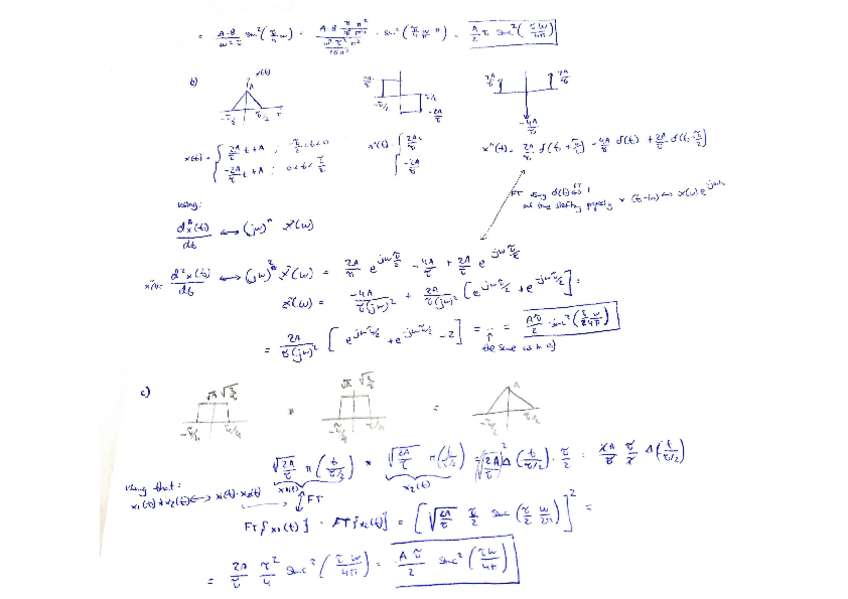 = A·8/(ω²τ) sin²(τ/4 ω) = · sin²( ) = A/2 τ sinc²(τω/4π)
b) x(t)
A
-τ/2 τ/2 t
-τ/2 τ/2 -2A/τ
2A/τ 2A/τ -4A/τ
x(t) = { 2A/τ t + A ; -τ/2 < t < 0
-2A/τ t + A ; 0 < t < τ/2
x'(t) = { 2A/τ
-2A/τ
x''(t) = 2A/τ δ(t + τ/2) - 4A/τ δ(t) + 2A/τ δ(t - τ/2)
FT using δ(t) ↔ 1
and time shifting property x(t-t₀) ↔ X(ω) e^
using:
dⁿx(t)/dt ↔ (jω)ⁿ X(ω)
d²x(t)/dt ↔ (jω)² X(ω) = 2A/τ e^{jωτ/2} - 4A/τ + 2A/τ e^{-jωτ/2}
X(ω) = -4A/τ(jω)² + 2A/τ(jω)² [e^{jωτ/2} + e^{-jωτ/2}] =
= 2A/τ(jω)² [e^{jωτ/2} + e^{-jωτ/2} - 2] = .. = Aτ/2 · sinc²(τω/4π)
the same as in a)
c) √A √(2/τ) √A √(2/τ) A
-τ/4 τ/4 * -τ/4 τ/4 = -τ/2 τ/2
√(2A/τ) Π(t/(τ/2)) * √(2A/τ) Π(t/(τ/2)) = √(2A/τ)² Δ(t/(τ/2)) · τ/2 = 2A/τ τ/2 Δ(t/(τ/2))
x₁(t) x₂(t)
using that:
x₁(t) * x₂(t) ↔ x₁(t) · x₂(t)
↕ FT
FT{x₁(t)} · FT{x₂(t)} = [√(2A/τ) τ/2 sinc(τ/2 ω/2π)]² =
= 2A/τ τ²/4 sinc²(τω/4π) = Aτ/2 sinc²(τω/4π)